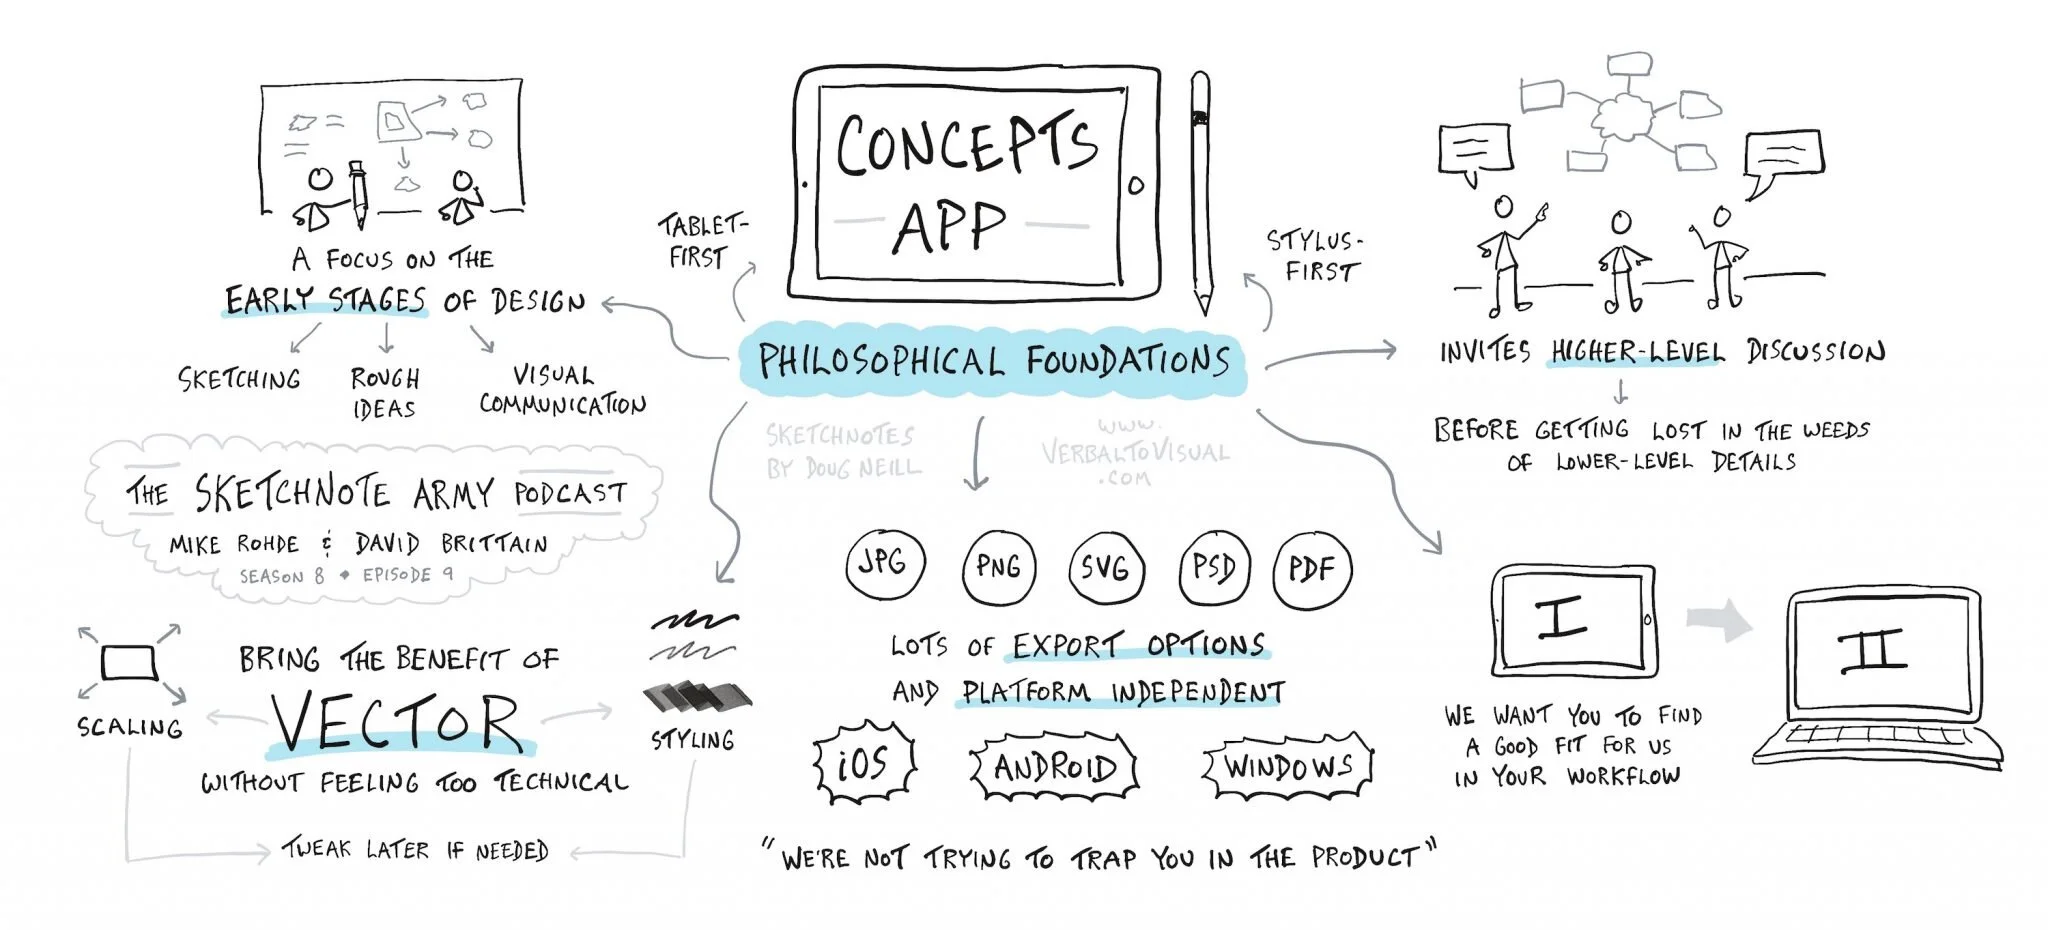 CONCEPTS
APP
TABLET-
FIRST
STYLUS-
FIRST
PHILOSOPHICAL FOUNDATIONS
SKETCHNOTES
BY DOUG NEILL
WWW.
VERBALTOVISUAL
.COM
A FOCUS ON THE
EARLY STAGES OF DESIGN
SKETCHING
ROUGH
IDEAS
VISUAL
COMMUNICATION
THE SKETCHNOTE ARMY PODCAST
MIKE ROHDE & DAVID BRITTAIN
SEASON 8 • EPISODE 9
BRING THE BENEFIT OF
VECTOR
WITHOUT FEELING TOO TECHNICAL
SCALING
STYLING
TWEAK LATER IF NEEDED
JPG
PNG
SVG
PSD
PDF
LOTS OF EXPORT OPTIONS
AND PLATFORM INDEPENDENT
iOS
ANDROID
WINDOWS
"WE'RE NOT TRYING TO TRAP YOU IN THE PRODUCT"
INVITES HIGHER-LEVEL DISCUSSION
BEFORE GETTING LOST IN THE WEEDS
OF LOWER-LEVEL DETAILS
I
II
WE WANT YOU TO FIND
A GOOD FIT FOR US
IN YOUR WORKFLOW